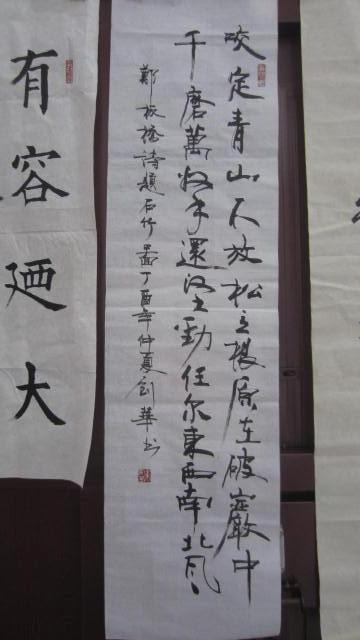 咬定青山不放松立根原在破巖中
千磨萬擊還堅勁任尔東西南北风
鄭板橋詩題石竹圖丁酉年仲夏劍華书
有容廼大